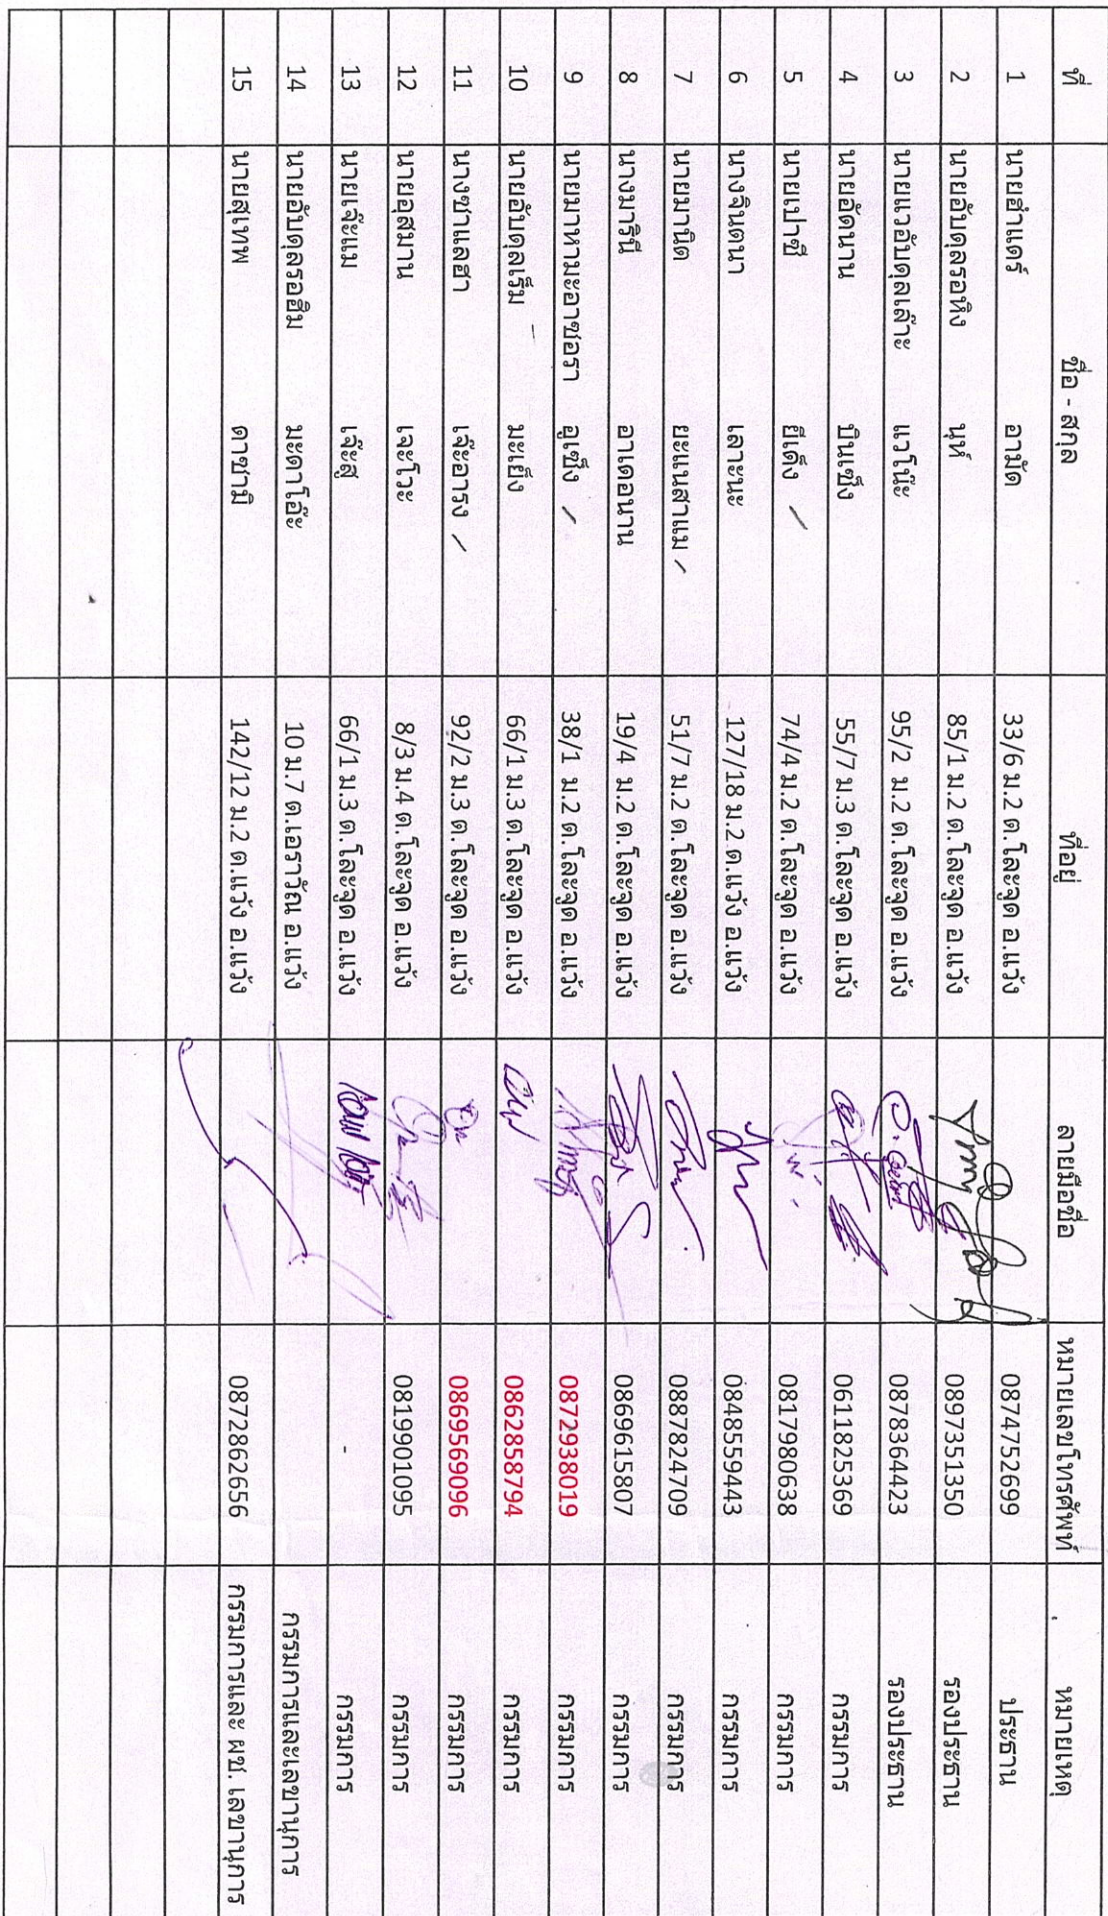 ที่ ชื่อ - สกุล ที่อยู่ ลายมือชื่อ หมายเลขโทรศัพท์ หมายเหตุ
1 นายฮำแดร์ อามัด 33/6 ม.2 ต.โละจูด อ.แว้ง 0874752699 ประธาน
2 นายอับดุลรอหิง นุห์ 85/1 ม.2 ต.โละจูด อ.แว้ง 0897351350 รองประธาน
3 นายแวอับดุลเล๊าะ แวโน๊ะ 95/2 ม.2 ต.โละจูด อ.แว้ง 0878364423 รองประธาน
4 นายอัดนาน บินเซ็ง 55/7 ม.3 ต.โละจูด อ.แว้ง 0611825369 กรรมการ
5 นายเปาซี ยีเด็ง 74/4 ม.2 ต.โละจูด อ.แว้ง 0817980638 กรรมการ
6 นางจินตนา เลาะนะ 127/18 ม.2 ต.แว้ง อ.แว้ง 0848559443 กรรมการ
7 นายมานิต ยะแนสาแม 51/7 ม.2 ต.โละจูด อ.แว้ง 0887824709 กรรมการ
8 นางมารินี อาเดอนาน 19/4 ม.2 ต.โละจูด อ.แว้ง 0869615807 กรรมการ
9 นายมาหามะอาซอรา อูเซ็ง 38/1 ม.2 ต.โละจูด อ.แว้ง 0872938019 กรรมการ
10 นายอับดุลเร็ม มะเย็ง 66/1 ม.3 ต.โละจูด อ.แว้ง 0862858794 กรรมการ
11 นางซาแลฮา เจ๊ะอารง 92/2 ม.3 ต.โละจูด อ.แว้ง 0869569096 กรรมการ
12 นายอุสมาน เจะโวะ 8/3 ม.4 ต.โละจูด อ.แว้ง 0819901095 กรรมการ
13 นายเจ๊ะแม เจ๊ะสู 66/1 ม.3 ต.โละจูด อ.แว้ง - กรรมการ
14 นายอับดุลรอฮิม มะดาโอ๊ะ 10 ม.7 ต.เอราวัณ อ.แว้ง กรรมการและเลขานุการ
15 นายสุเทพ ดาซามิ 142/12 ม.2 ต.แว้ง อ.แว้ง 0872862656 กรรมการและ ผช. เลขานุการ